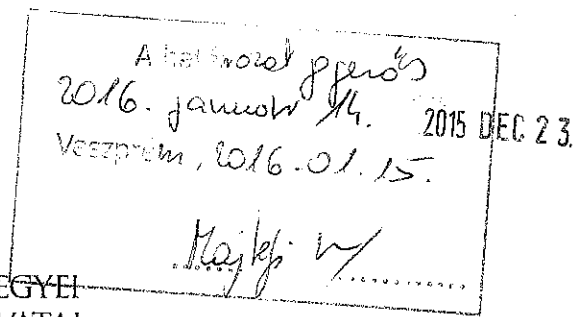 A határozat jogerős
2016. január 14.
2015 DEC 23.
Veszprém, 2016.01.15.
EGYEI